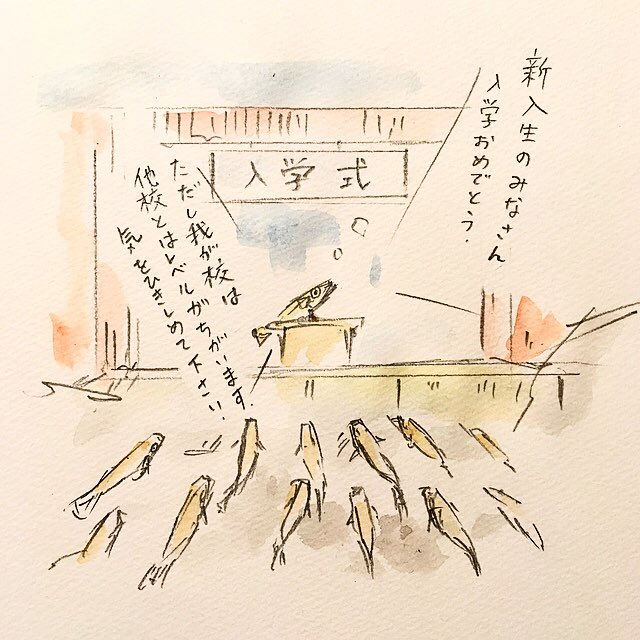 新入生のみなさん
入学おめでとう.
入学式
ただし我が校は
他校とはレベルがちがいます.
気をひきしめて下さい.